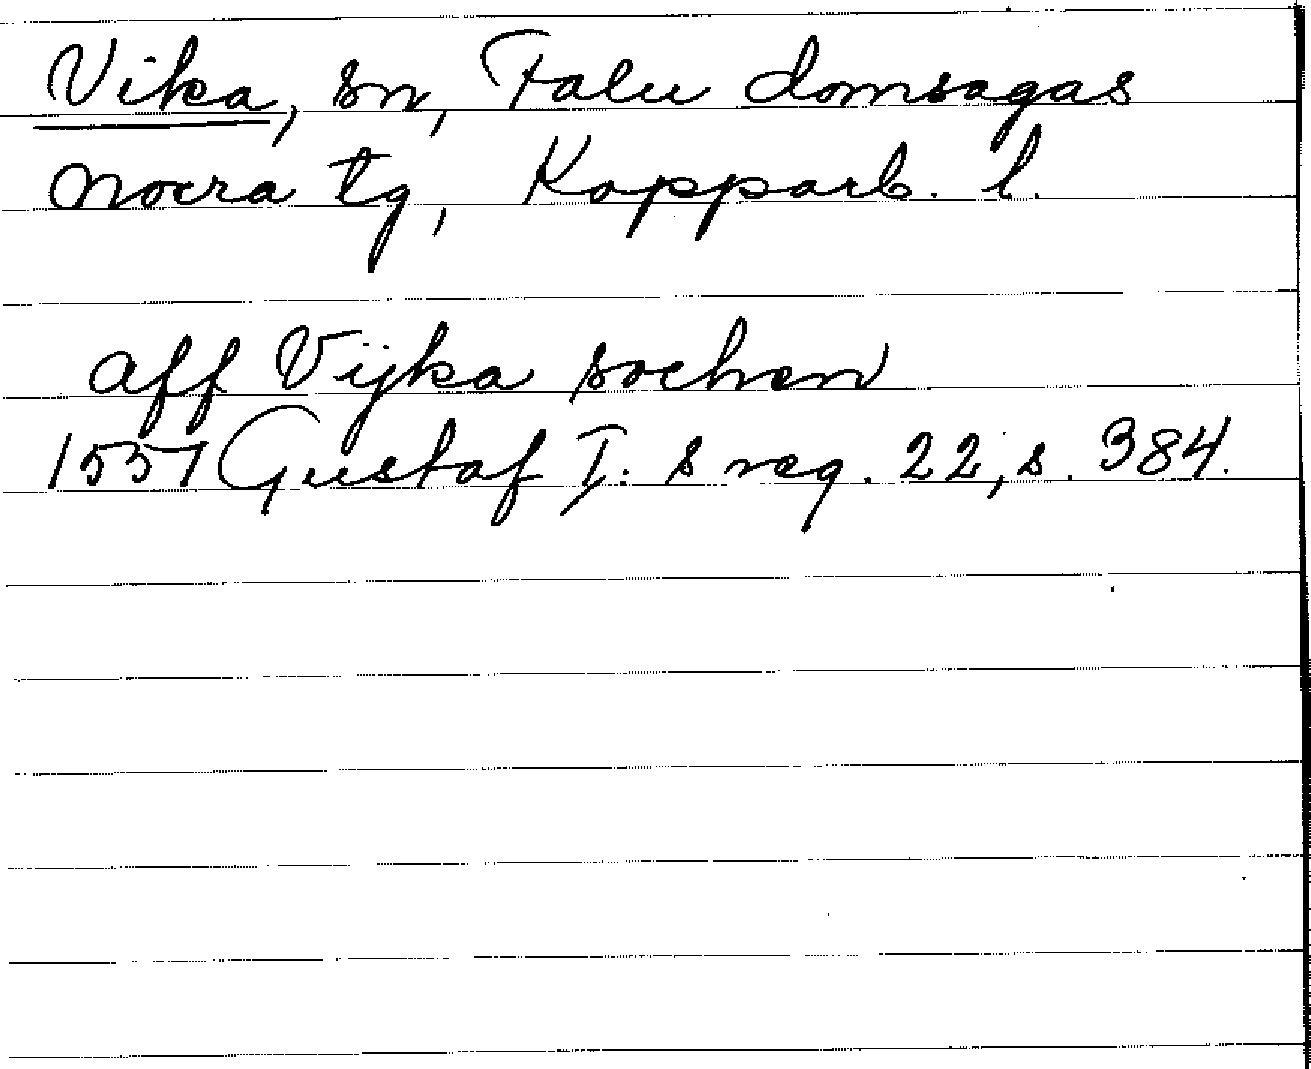 Vika, sn, Falu domsagas
norra tg, Kopparb. l.
aff Vijka sochen
1551 Gustaf I:s reg. 22, s. 384.